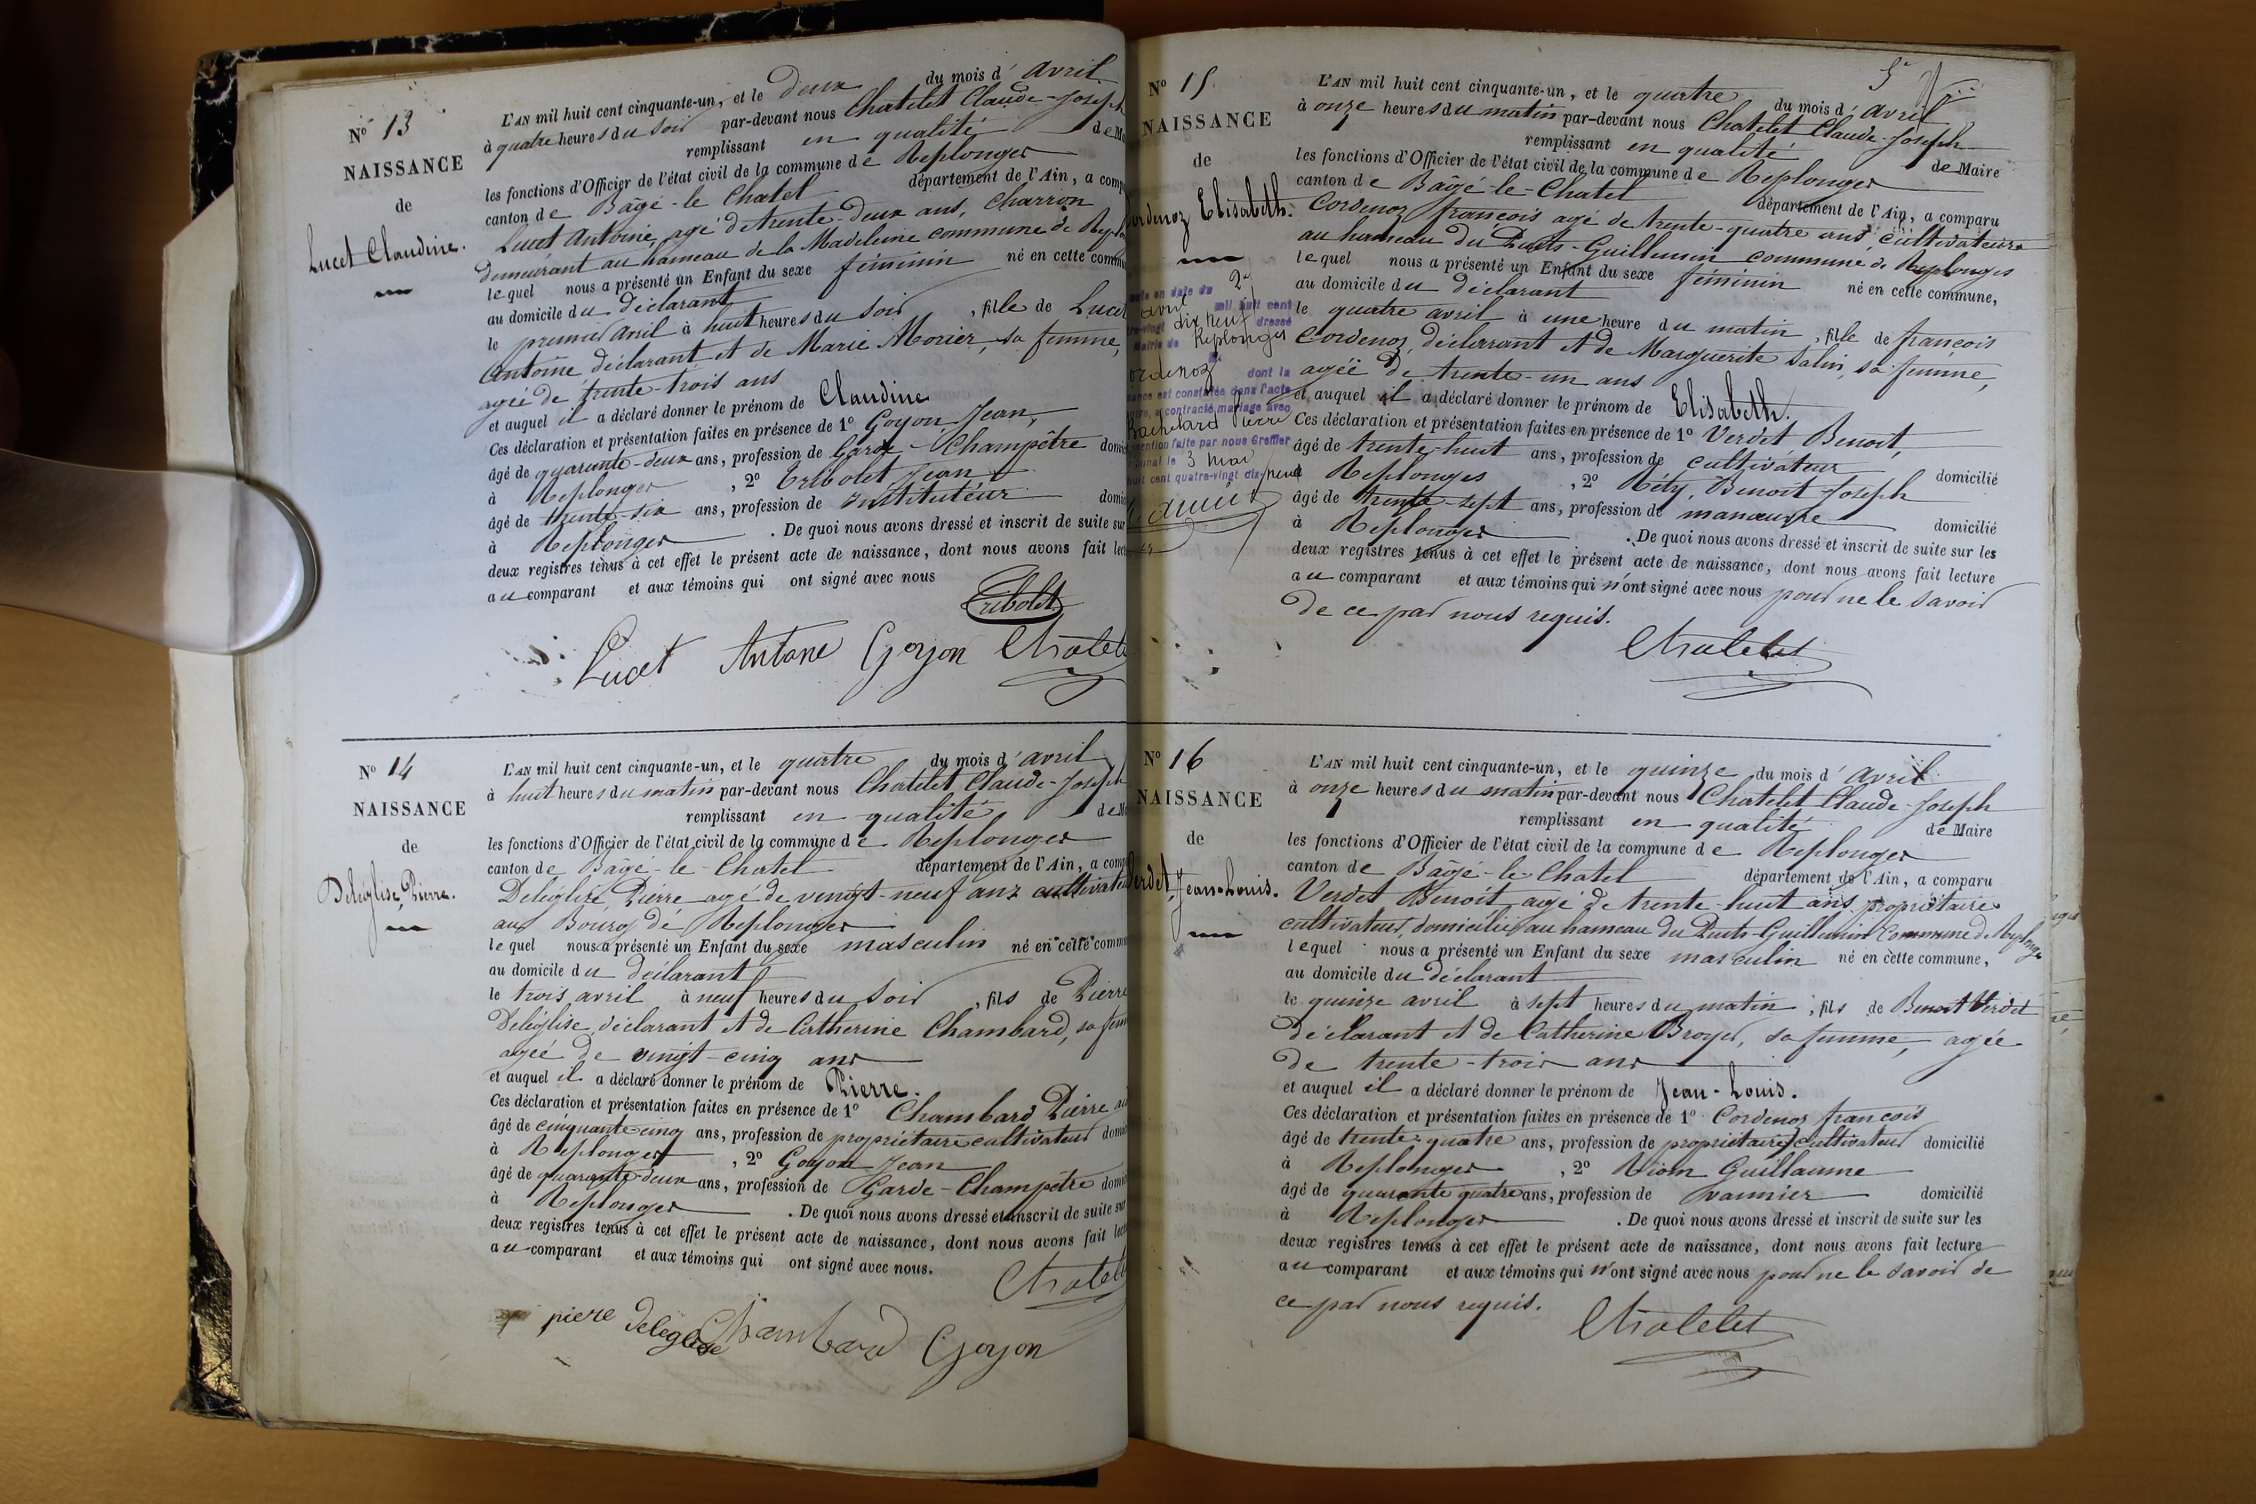 N° 13
NAISSANCE
de
Lucet Claudine.
L'AN mil huit cent cinquante-un, et le deux du mois d'avril
à quatre heures du soir par-devant nous Chatelet Claude-Joseph
remplissant en qualité de M
les fonctions d'Officier de l'état civil de la commune de Replonges
canton de Bâgé-le-Chatel département de l'Ain, a comp
Lucet Antoine, agé de trente-deux ans, Charron
demeurant au hameau de la Madeleine commune de Repl
lequel nous a présenté un Enfant du sexe féminin né en cette comm
au domicile du déclarant
le premier avril à huit heures du soir, fille de Lucet
Antoine déclarant et de Marie Morier, sa femme,
agée de trente-trois ans
et auquel il a déclaré donner le prénom de Claudine
Ces déclaration et présentation faites en présence de 1° Goyon Jean,
âgé de quarante-deux ans, profession de Garde-Champêtre domi
à Replonges, 2° Tribolet Jean
âgé de trente-six ans, profession de instituteur domi
à Replonges. De quoi nous avons dressé et inscrit de suite sur
deux registres tenus à cet effet le présent acte de naissance, dont nous avons fait lec
au comparant et aux témoins qui ont signé avec nous
Tribolet
Lucet Antone Goyon Chatelet
N° 14
NAISSANCE
de
Deléglise, Pierre.
L'AN mil huit cent cinquante-un, et le quatre du mois d'avril
à huit heures du matin par-devant nous Chatelet Claude-Joseph
remplissant en qualité de M
les fonctions d'Officier de l'état civil de la commune de Replonges
canton de Bâgé-le-Chatel département de l'Ain, a comp
Deléglise, Pierre agé de vingt-neuf ans cultivateur
au Bourg de Replonges
lequel nous a présenté un Enfant du sexe masculin né en cette comm
au domicile du déclarant
le trois avril à neuf heures du soir, fils de Pierre
Deléglise, déclarant et de Catherine Chambard, sa fem
agée de vingt-cinq ans
et auquel il a déclaré donner le prénom de Pierre.
Ces déclaration et présentation faites en présence de 1° Chambard Pierre
âgé de cinquante-cinq ans, profession de propriétaire cultivateur domi
à Replonges, 2° Goyon Jean
âgé de quarante-deux ans, profession de Garde-Champêtre domi
à Replonges. De quoi nous avons dressé et inscrit de suite sur
deux registres tenus à cet effet le présent acte de naissance, dont nous avons fait lect
au comparant et aux témoins qui ont signé avec nous.
Chatelet
piere deleglise Chambard Goyon
5e
N° 15
NAISSANCE
de
ordenoz Elisabeth.
en date du 2
avril mil huit cent
vingt dix neuf dressé
Mairie de Replonges
ordenoz dont la
est constatée dans l'acte
contracté mariage avec
Bachelard Pierre
mention faite par nous Greffier
le 3 mai
huit cent quatre-vingt dix neuf
L'AN mil huit cent cinquante-un, et le quatre du mois d'avril
à onze heures du matin par-devant nous Chatelet Claude-Joseph
remplissant en qualité de Maire
les fonctions d'Officier de l'état civil de la commune de Replonges
canton de Bâgé-le-Chatel département de l'Ain, a comparu
Cordenoz françois agé de trente-quatre ans, cultivateur
au hameau du Puits-Guillemin commune de Replonges
lequel nous a présenté un Enfant du sexe féminin né en cette commune,
au domicile du déclarant
le quatre avril à une heure du matin, fille de françois
Cordenoz, déclarant et de Marguerite Salin, sa femme,
agée de trente-un ans
et auquel il a déclaré donner le prénom de Elisabeth.
Ces déclaration et présentation faites en présence de 1° Verdet Benoit,
âgé de trente-huit ans, profession de cultivateur domicilié
à Replonges, 2° Réty, Benoit-Joseph
âgé de trente-sept ans, profession de manœuvre domicilié
à Replonges. De quoi nous avons dressé et inscrit de suite sur les
deux registres tenus à cet effet le présent acte de naissance, dont nous avons fait lecture
au comparant et aux témoins qui n'ont signé avec nous pour ne le savoir
de ce par nous requis.
Chatelet
N° 16
NAISSANCE
de
Verdet, Jean-Louis.
L'AN mil huit cent cinquante-un, et le quinze du mois d'avril
à onze heures du matin par-devant nous Chatelet Claude-Joseph
remplissant en qualité de Maire
les fonctions d'Officier de l'état civil de la commune de Replonges
canton de Bâgé-le-Chatel département de l'Ain, a comparu
Verdet Benoit, agé de trente-huit ans, propriétaire
cultivateur, domicilié au hameau du Puits-Guillemin Commune de Replonges
lequel nous a présenté un Enfant du sexe masculin né en cette commune,
au domicile du déclarant
le quinze avril à sept heures du matin, fils de Benoit Verdet
déclarant et de Catherine Broyer, sa femme, agée
de trente-trois ans
et auquel il a déclaré donner le prénom de Jean-Louis.
Ces déclaration et présentation faites en présence de 1° Cordenoz françois
âgé de trente-quatre ans, profession de propriétaire cultivateur domicilié
à Replonges, 2° Riom Guillaume
âgé de quarante quatre ans, profession de vannier domicilié
à Replonges. De quoi nous avons dressé et inscrit de suite sur les
deux registres tenus à cet effet le présent acte de naissance, dont nous avons fait lecture
au comparant et aux témoins qui n'ont signé avec nous pour ne le savoir de
ce par nous requis.
Chatelet